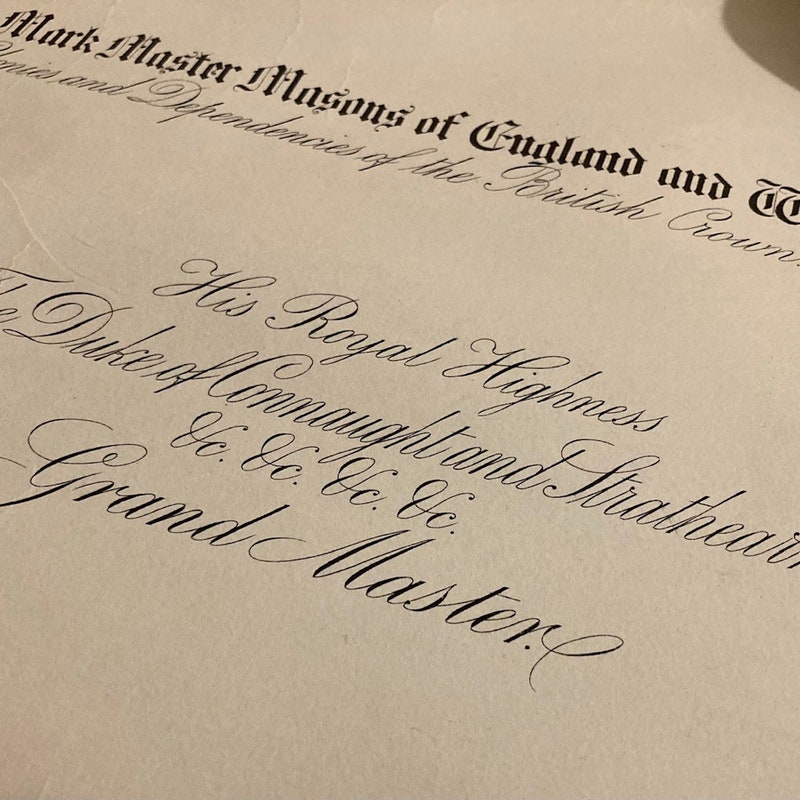 Mark Master Masons of England and
and Dependencies of the British Crown.
His Royal Highness
The Duke of Connaught and Strathearn
&c. &c. &c. &c.
Grand Master.